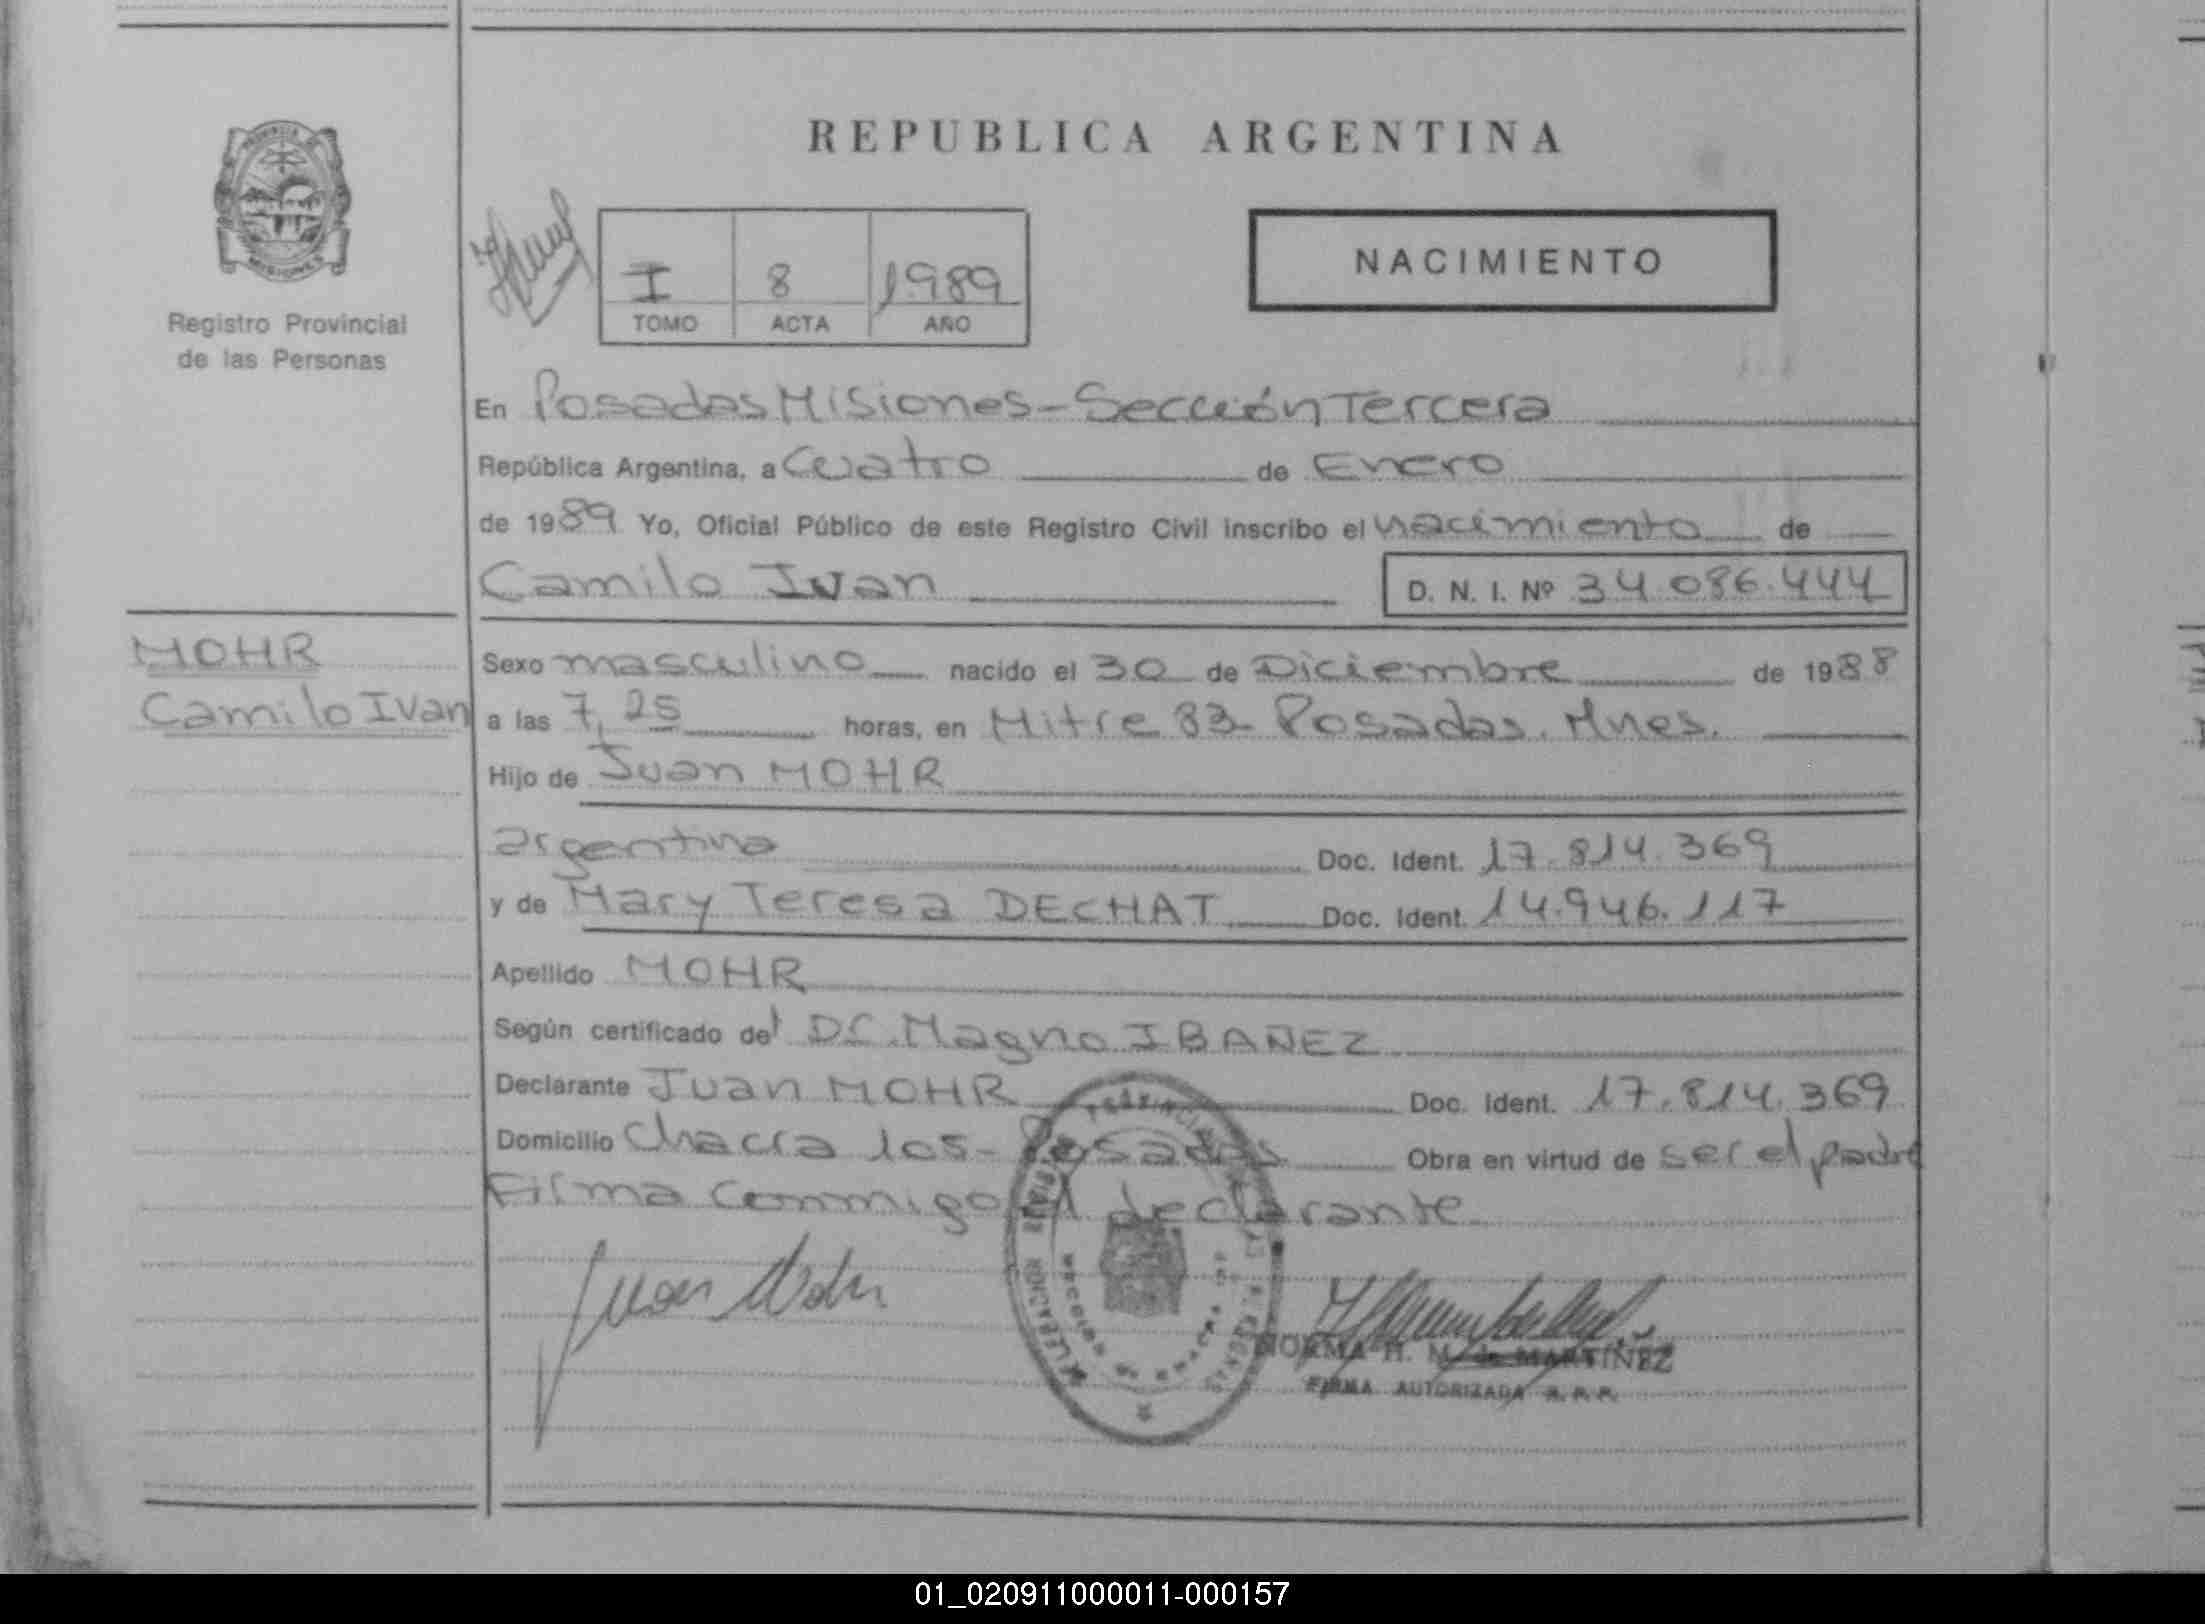 REPUBLICA ARGENTINA
PROVINCIA
MISIONES
Registro Provincial
de las Personas
I 8 1989
TOMO ACTA AÑO
NACIMIENTO
En Posadas Misiones - Sección Tercera
República Argentina, a Cuatro de Enero
de 1989 Yo, Oficial Público de este Registro Civil inscribo el nacimiento de
Camilo Ivan D. N. I. Nº 34.086.444
MOHR
Camilo Ivan
Sexo masculino nacido el 30 de Diciembre de 1988
a las 7,25 horas, en Mitre 83- Posadas. Mnes.
Hijo de Juan MOHR
argentina Doc. Ident. 17.814.369
y de Mary Teresa DECHAT Doc. Ident. 14.946.117
Apellido MOHR
Según certificado del Dr. Magno IBAÑEZ
Declarante Juan MOHR Doc. Ident. 17.814.369
Domicilio Chacra 105- Posadas Obra en virtud de ser el padre
Firma conmigo el declarante
Juan Mohr
NORMA H. M. de MARTINEZ
FIRMA AUTORIZADA R. P. P.
01_020911000011-000157